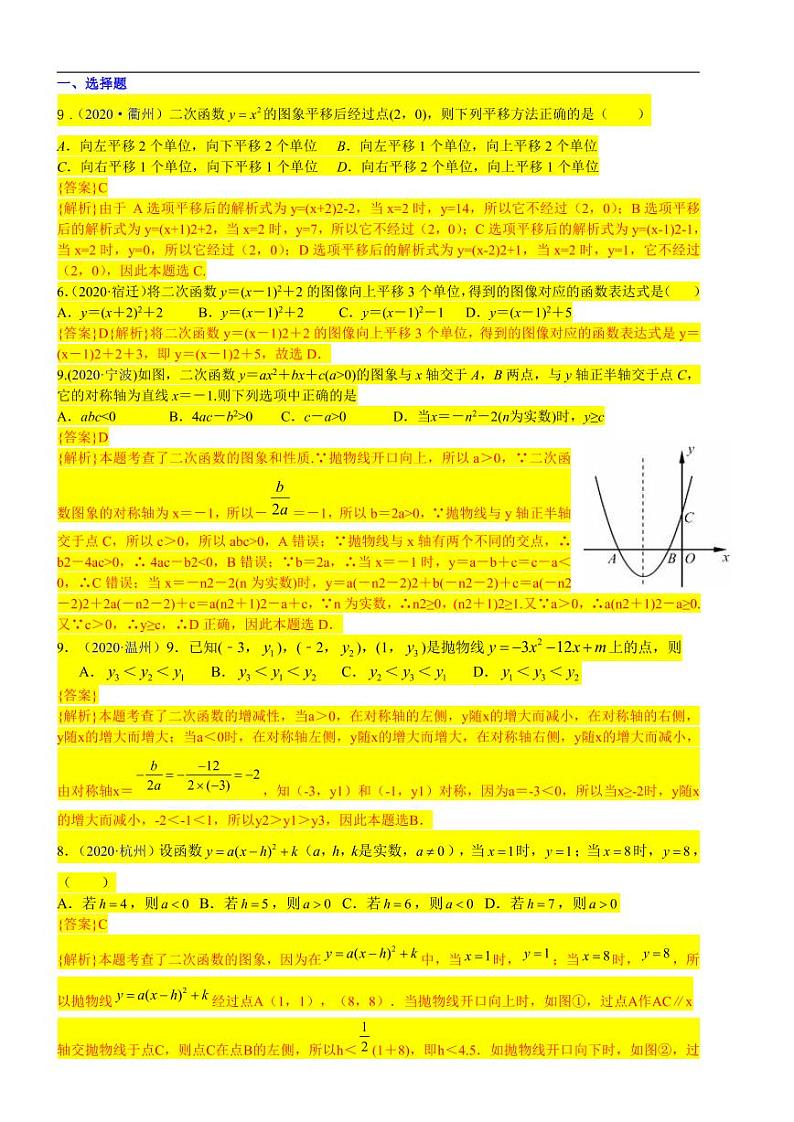 一、选择题
9 .（2020·衢州）二次函数 y = x² 的图象平移后经过点(2，0)，则下列平移方法正确的是（　　）
A．向左平移 2 个单位，向下平移 2 个单位　B．向左平移 1 个单位，向上平移 2 个单位
C．向右平移 1 个单位，向下平移 1 个单位　D．向右平移 2 个单位，向上平移 1 个单位
{答案}C
{解析}由于 A 选项平移后的解析式为 y=(x+2)2-2，当 x=2 时，y=14，所以它不经过（2，0）；B 选项平移
后的解析式为 y=(x+1)2+2，当 x=2 时，y=7，所以它不经过（2，0）；C 选项平移后的解析式为 y=(x-1)2-1，
当 x=2 时，y=0，所以它经过（2，0）；D 选项平移后的解析式为 y=(x-2)2+1，当 x=2 时，y=1，它不经过
（2，0），因此本题选 C.
6.（2020·宿迁）将二次函数 y＝(x－1)²＋2 的图像向上平移 3 个单位，得到的图像对应的函数表达式是（　　）
A．y＝(x＋2)²＋2　　B．y＝(x－1)²＋2　　C．y＝(x－1)²－1　D．y＝(x－1)²＋5
{答案}D{解析}将二次函数 y＝(x－1)2＋2 的图像向上平移 3 个单位，得到的图像对应的函数表达式是 y＝
(x－1)2＋2＋3，即 y＝(x－1)2＋5，故选 D．
9.(2020·宁波)如图，二次函数 y＝ax²＋bx＋c(a>0)的图象与 x 轴交于 A，B 两点，与 y 轴正半轴交于点 C，
它的对称轴为直线 x＝－1.则下列选项中正确的是
A．abc<0　　　B．4ac－b²>0　C．c－a>0　　　D．当x＝－n²－2(n为实数)时，y≥c
{答案}D
{解析}本题考查了二次函数的图象和性质.∵抛物线开口向上，所以 a＞0，∵二次函
数图象的对称轴为 x＝－1，所以－b/2a＝－1，所以 b＝2a>0，∵抛物线与 y 轴正半轴
交于点 C，所以 c＞0，所以 abc>0，A 错误；∵抛物线与 x 轴有两个不同的交点，∴
b2－4ac>0，∴ 4ac－b2<0，B 错误；∵b＝2a，∴当 x＝－1 时，y＝a－b＋c＝c－a＜
0，∴C 错误；当 x＝－n2－2(n 为实数)时，y＝a(－n2－2)2＋b(－n2－2)＋c＝a(－n2
－2)2＋2a(－n2－2)＋c＝a(n2＋1)2－a＋c，∵n 为实数，∴n2≥0，(n2＋1)2≥1.又∵a＞0，∴a(n2＋1)2－a≥0.
又∵c＞0，∴y≥c，∴D 正确，因此本题选 D．
y
C
A
B
O
x
9．（2020·温州）9．已知(﹣3， y₁ )，(﹣2， y₂ )，(1， y₃ )是抛物线 y = −3x² −12x + m 上的点，则
A．y₃＜y₂＜y₁　B．y₃＜y₁＜y₂　C．y₂＜y₃＜y₁　D．y₁＜y₃＜y₂
{答案}
{解析}本题考查了二次函数的增减性，当a＞0，在对称轴的左侧，y随x的增大而减小，在对称轴的右侧，
y随x的增大而增大；当a＜0时，在对称轴左侧，y随x的增大而增大，在对称轴右侧，y随x的增大而减小，
由对称轴x＝ −b/2a = −(−12)/(2×(−3)) = −2 ，知（-3，y1）和（-1，y1）对称，因为a＝-3＜0，所以当x≥-2时，y随x
的增大而减小，-2＜-1＜1，所以y2＞y1＞y3，因此本题选B．
8．（2020·杭州）设函数 y = a(x − h)² + k（a，h，k是实数，a ≠ 0），当 x = 1时，y = 1；当 x = 8时，y = 8，
（　　）
A．若 h = 4，则 a < 0　B．若 h = 5，则 a > 0　C．若 h = 6，则 a < 0　D．若 h = 7，则 a > 0
{答案}C
{解析}本题考查了二次函数的图象，因为在 y = a(x − h)² + k 中，当 x = 1 时， y = 1 ；当 x = 8 时， y = 8 ，所
以抛物线 y = a(x − h)² + k 经过点A（1，1），（8，8）．当抛物线开口向上时，如图①，过点A作AC∥x
轴交抛物线于点C，则点C在点B的左侧，所以h＜ 1/2 (1＋8)，即h＜4.5．如抛物线开口向下时，如图②，过